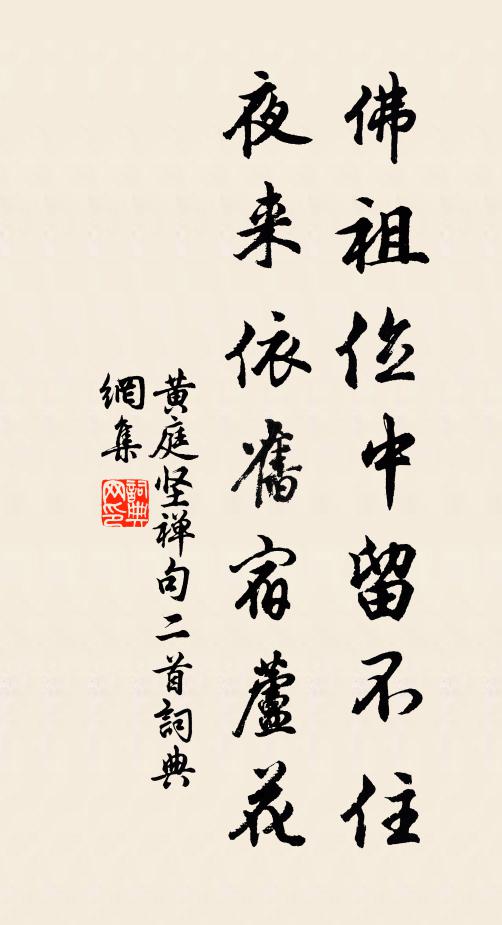 佛祖位中留不住
夜来依舊宿蘆花
黄庭坚禅句二首詞典
網集
詞典
网印